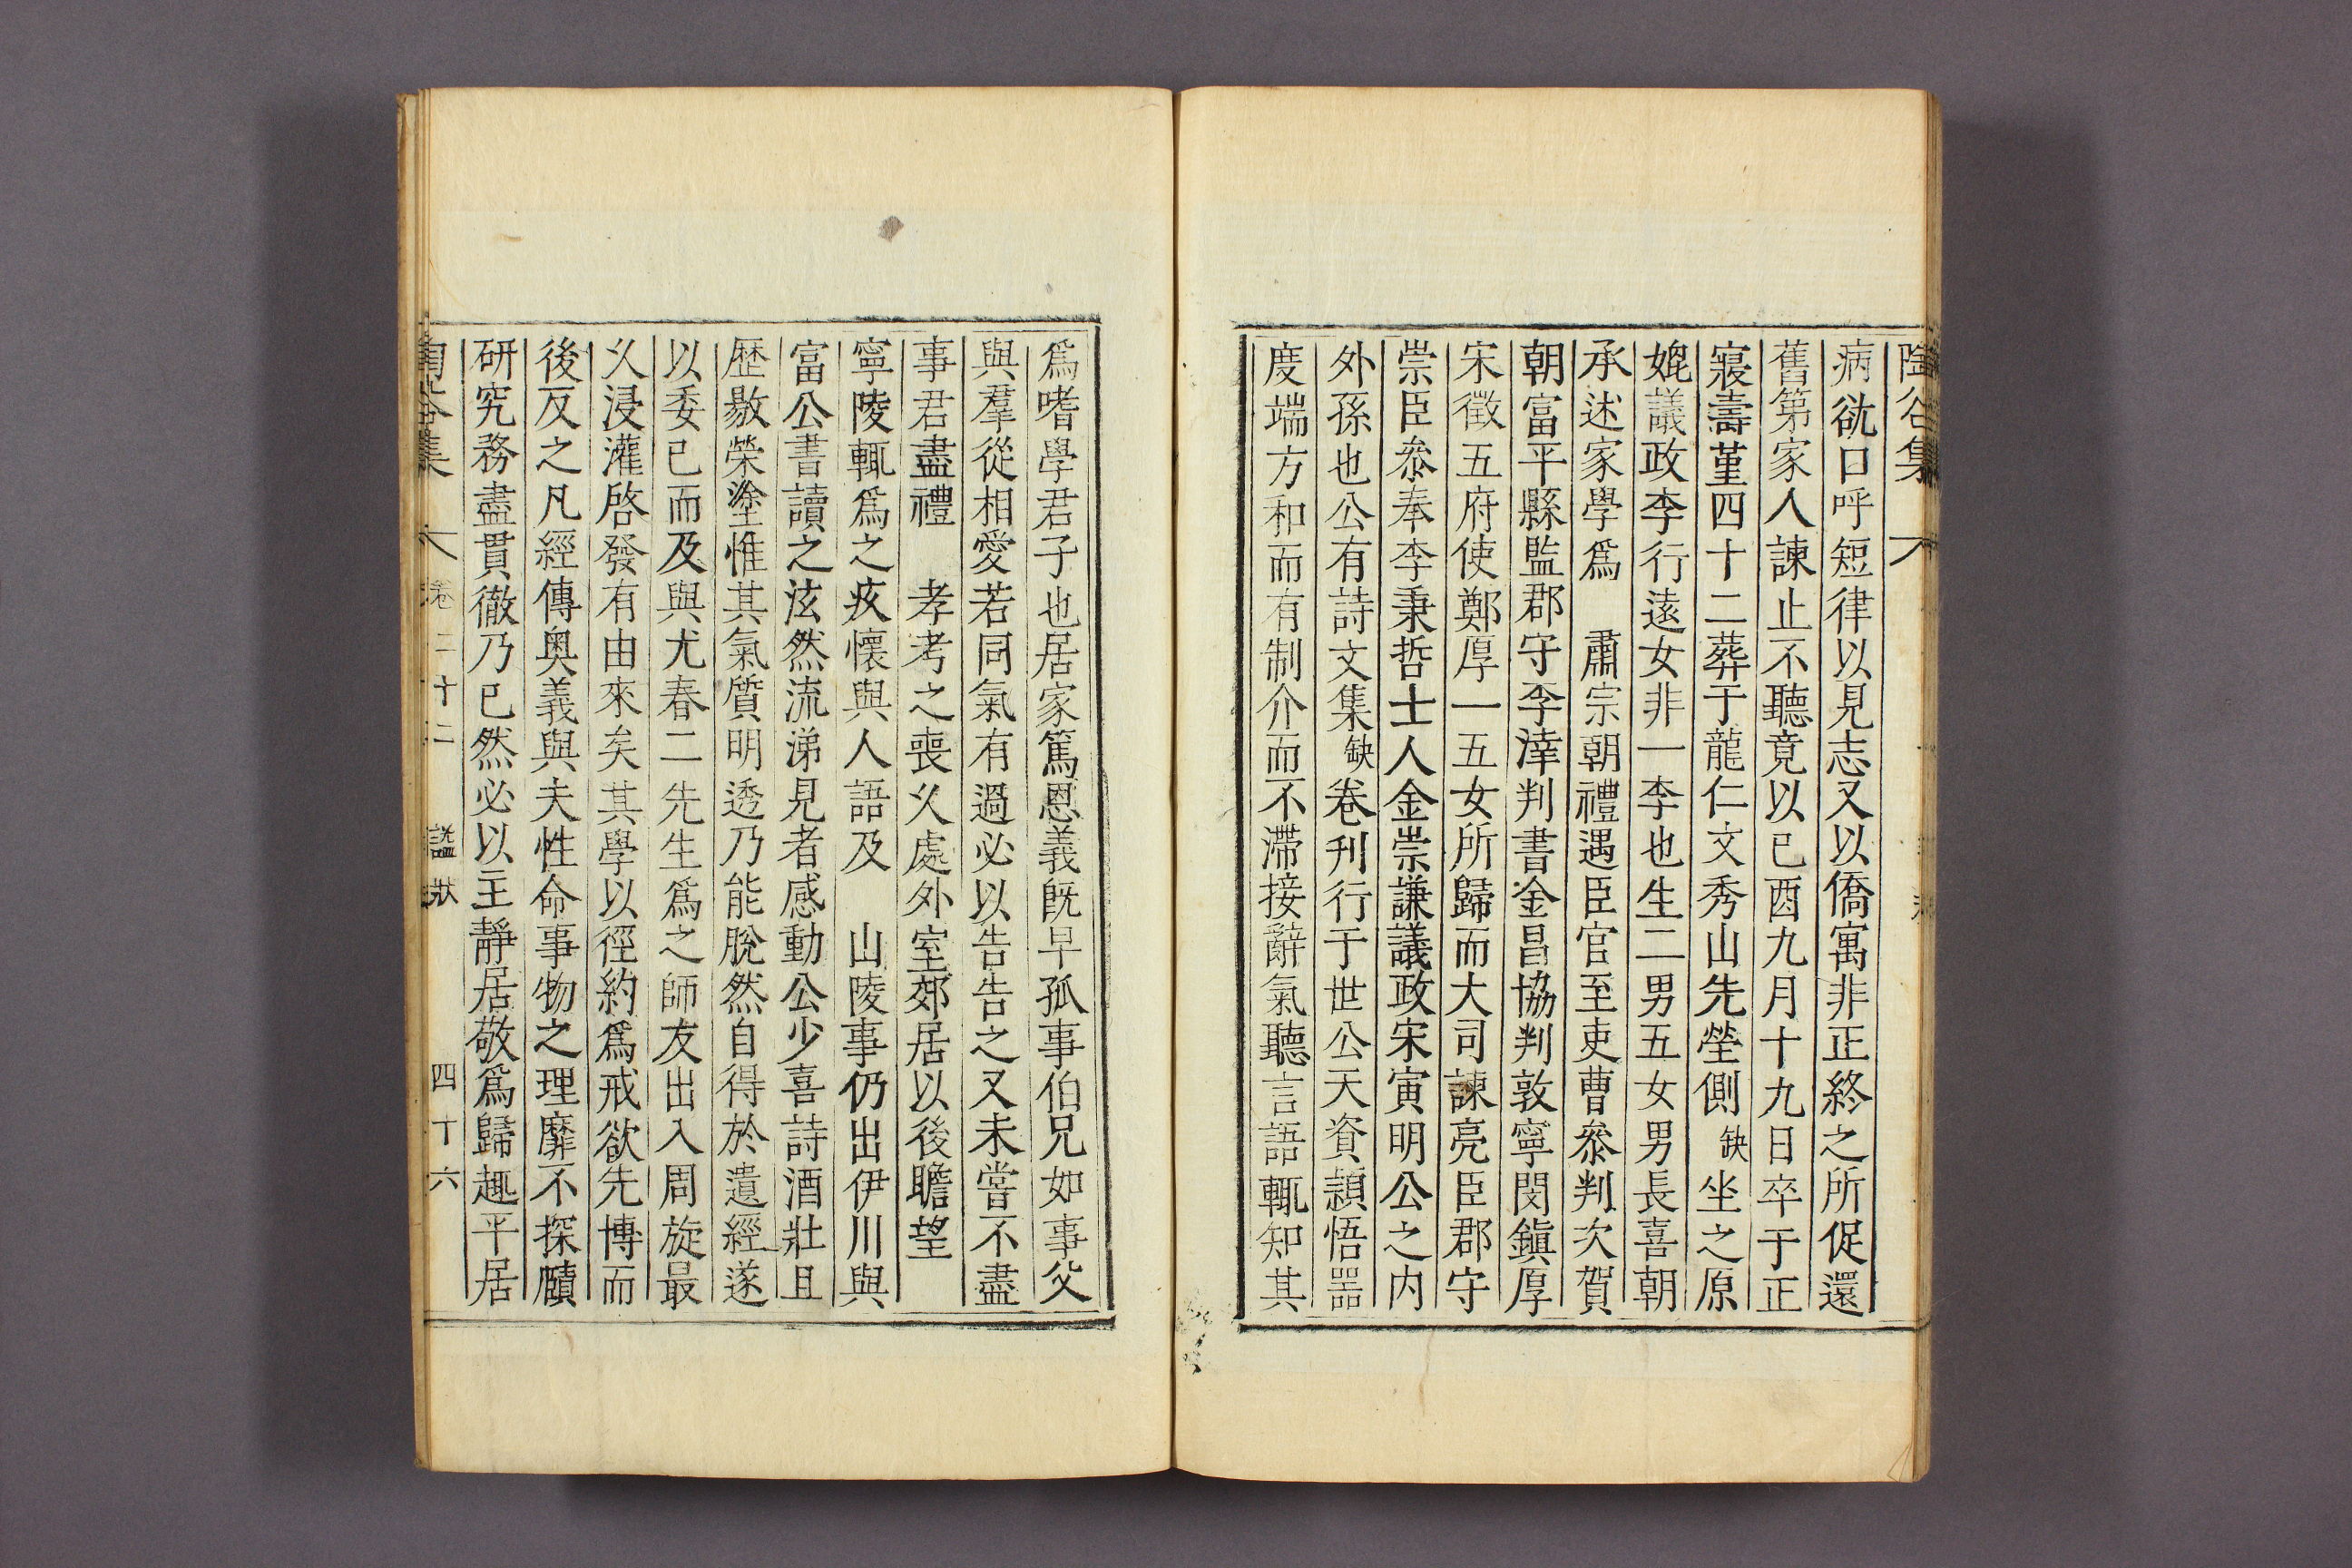 陶谷集
病欲口呼短律以見志又以僑寓非正終之所促還
舊第家人諫止不聽竟以己酉九月十九日卒于正
寢壽堇四十二葬于龍仁文秀山先塋側缺坐之原
媲議政李行遠女非一李也生二男五女男長喜朝
承述家學爲　肅宗朝禮遇臣官至吏曹叅判次賀
朝富平縣監郡守李滓判書金昌協判敦寧閔鎭厚
宋徵五府使鄭厚一五女所歸而大司諫亮臣郡守
崇臣叅奉李秉哲士人金崇謙議政宋寅明公之内
外孫也公有詩文集缺卷刊行于世公天資穎悟噐
度端方和而有制介而不滯接辭氣聽言語輒知其
爲嗜學君子也居家篤恩義旣早孤事伯兄如事父
與羣從相愛若同氣有過必以告告之又未嘗不盡
事君盡禮　孝考之喪乆處外室郊居以後瞻望
寧陵輒爲之疚懷與人語及　山陵事仍出伊川與
富公書讀之泫然流涕見者感動公少喜詩酒壯且
歷敭榮塗惟其氣質明透乃能脫然自得於遺經遂
以委己而及與尤春二先生爲之師友出入周旋最
乆浸灌啓發有由來矣其學以徑約爲戒欲先博而
後反之凡經傳奧義與夫性命事物之理靡不探賾
研究務盡貫徹乃已然必以主靜居敬爲歸趣平居
陶谷集　卷二十二　諡狀　四十六